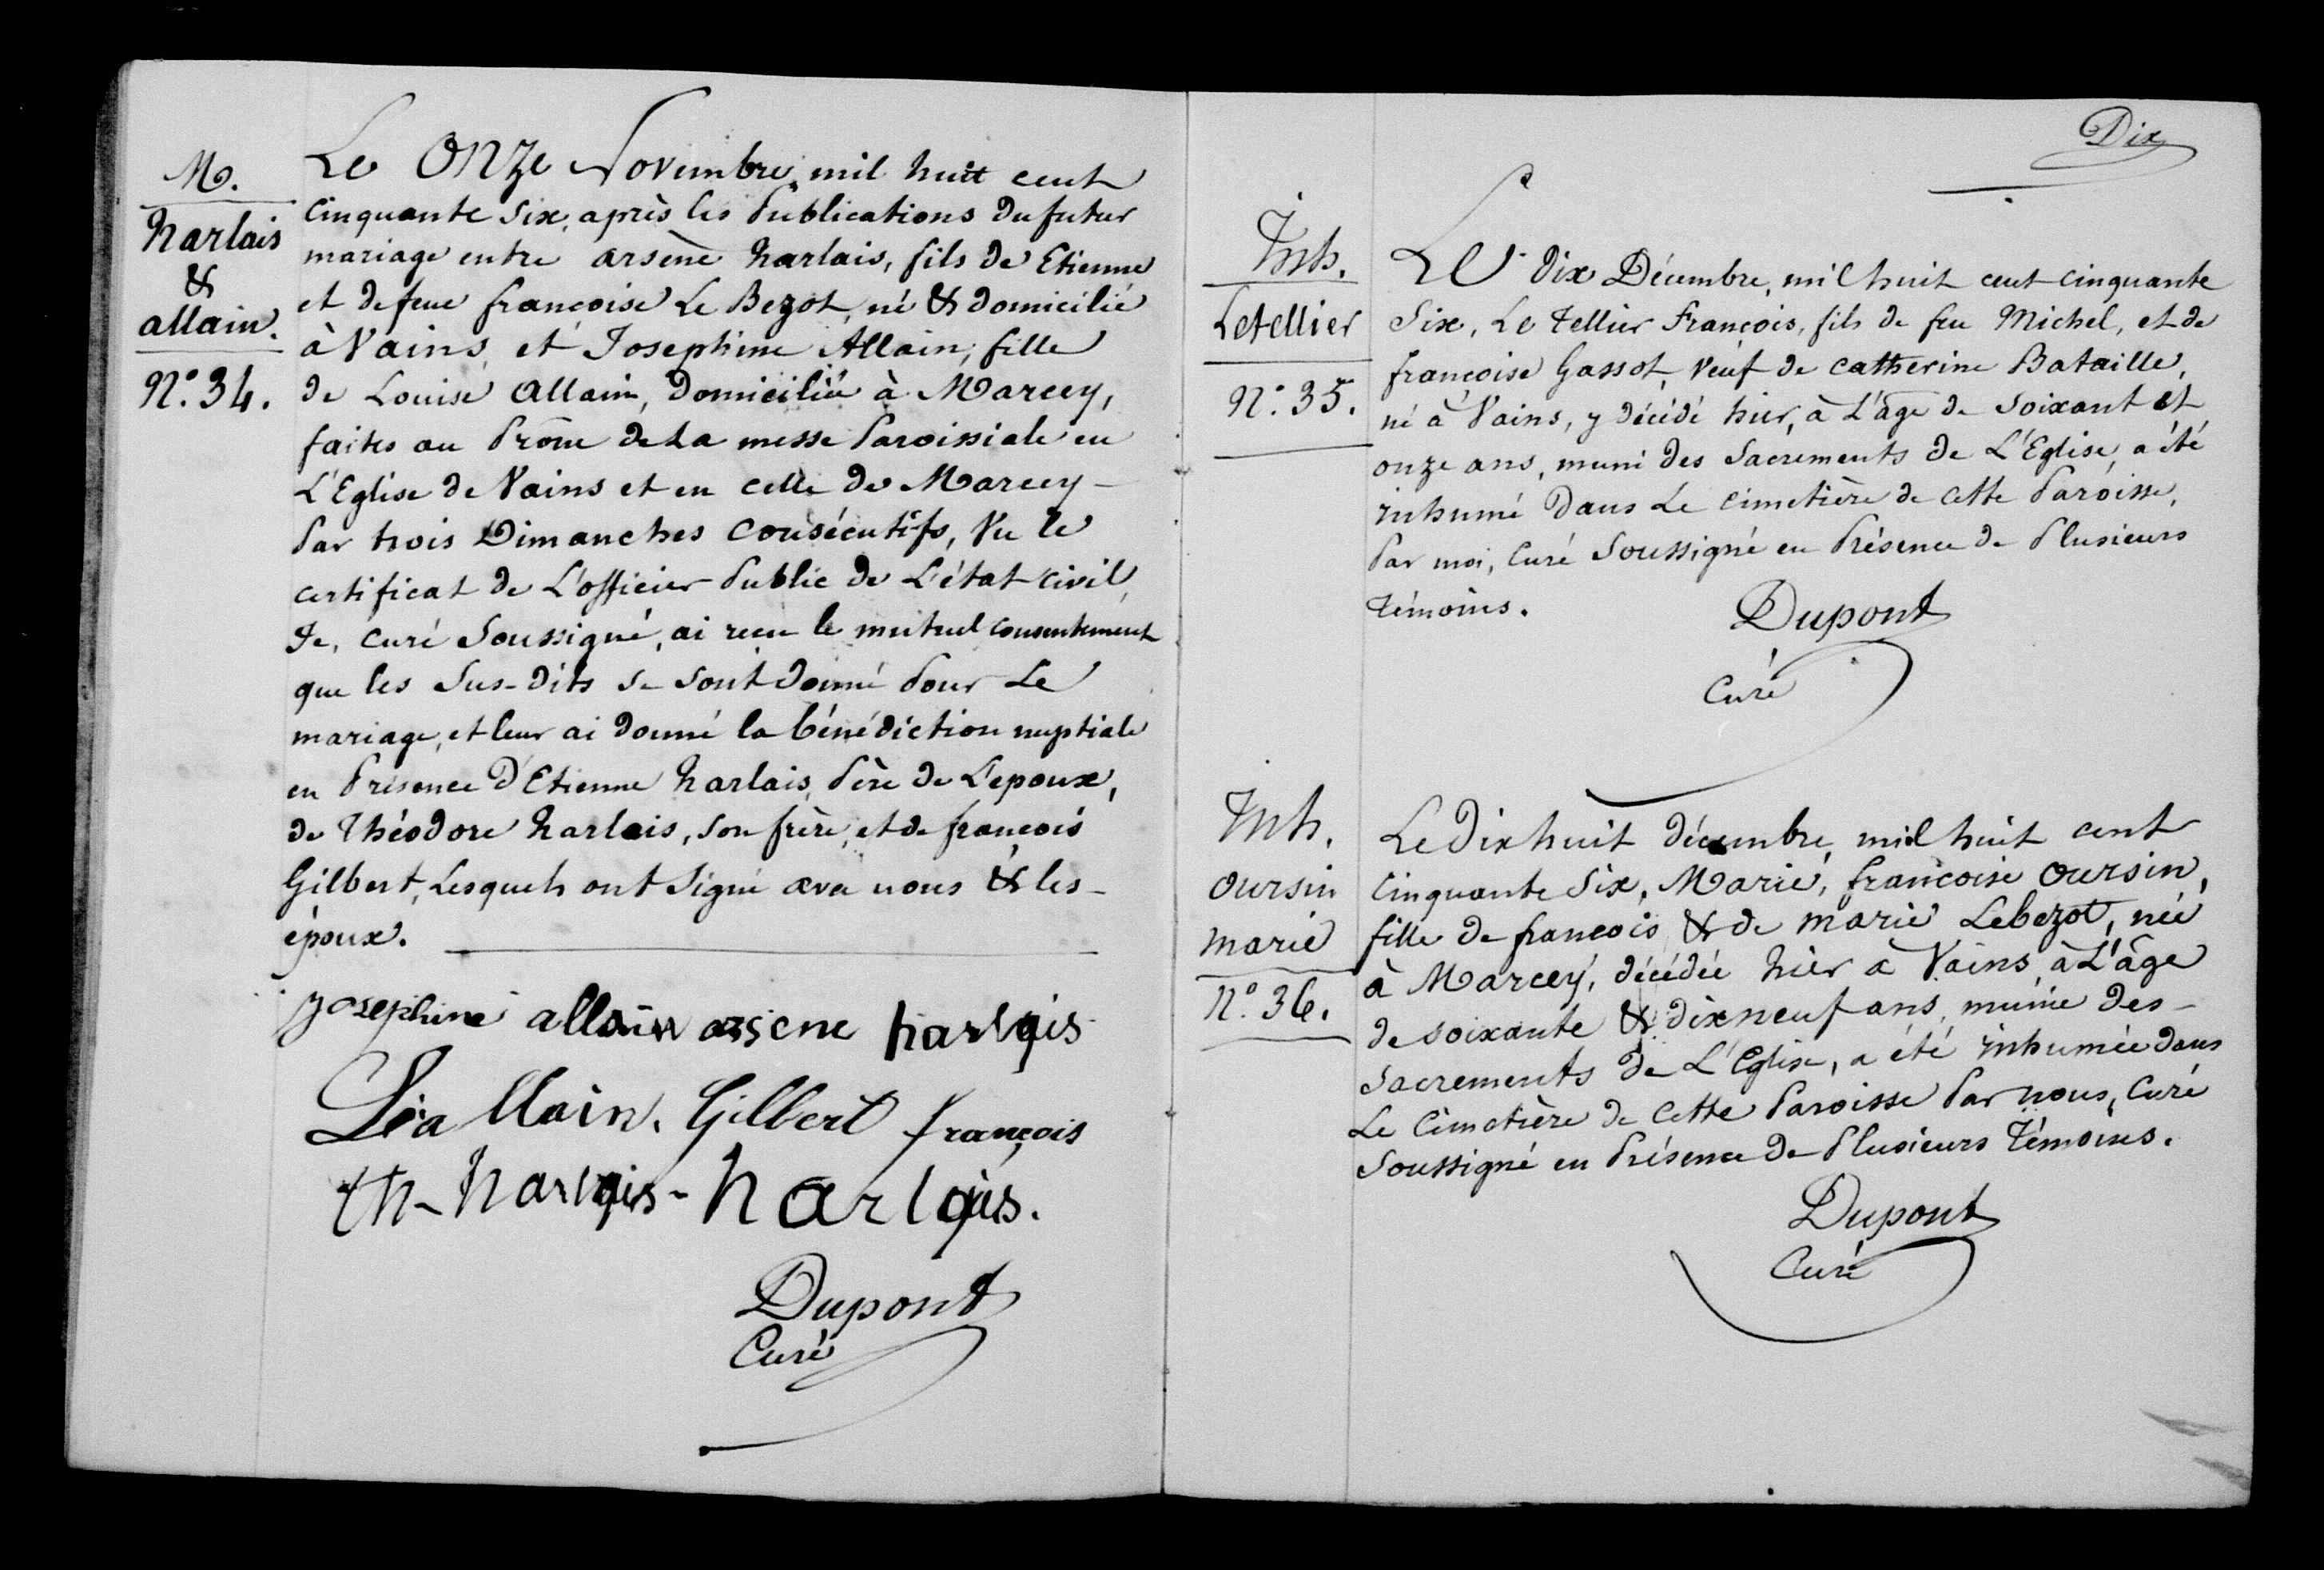 M.
harlais
&
allain.
N.° 34.
Le onze Novembre, mil huit cent
cinquante six, après les Publications du futur
mariage entre arsène harlais, fils de Etienne
et de feue françoise Le Bezot, né & domicilié
à Vains, et Josephine Allain, fille
de Louise Allain, Domiciliée à Marcey,
faites au Prône de La messe Paroissiale en
L'Eglise de Vains et en celle de Marcey -
Par trois Dimanches consécutifs, Vu le
certificat de L'officier Public de L'état civil,
Je, curé Soussigné, ai reçu le mutuel consentement
que les Sus-dits se sont donné Pour Le
mariage, et leur ai donné la bénédiction nuptiale
en Présence D'Etienne harlais, Père de L'epoux,
de Théodore harlais, son frère, et de françois
Gilbert, Lesquels ont signé avec nous & les -
époux.
Josephine allain arsene harlais
Léa llain. Gilbert françois
th - harlais - harlais.
Dupont
Curé
Dix
Inh.
Letellier
N.° 35.
Le dix Décembre, mil huit cent cinquante
Six, Le Tellier François, fils de feu Michel, et de
françoise Gassot, Veuf de catherine Bataille,
né à Vains, y décédé hier, à L'âge de Soixant et
onze ans, muni des Sacrements de L'Eglise, a été
inhumé Dans Le cimetière de cette Paroisse,
Par moi, Curé Soussigné en Présence de Plusieurs
Témoins.
Dupont
Curé
Inh.
oursin
marie
N.° 36.
Le Dix huit décembre, mil huit cent
Cinquante Six, Marie, françoise oursin,
fille de françois & de marie Lebezot, née
à Marcey, décédée hier à Vains, à L'âge
de soixante & dix neuf ans, munie des -
Sacrements de L'Eglise, a été inhumée dans
Le Cimetière de Cette Paroisse Par nous, Curé
Soussigné en Présence de Plusieurs Témoins.
Dupont
Curé